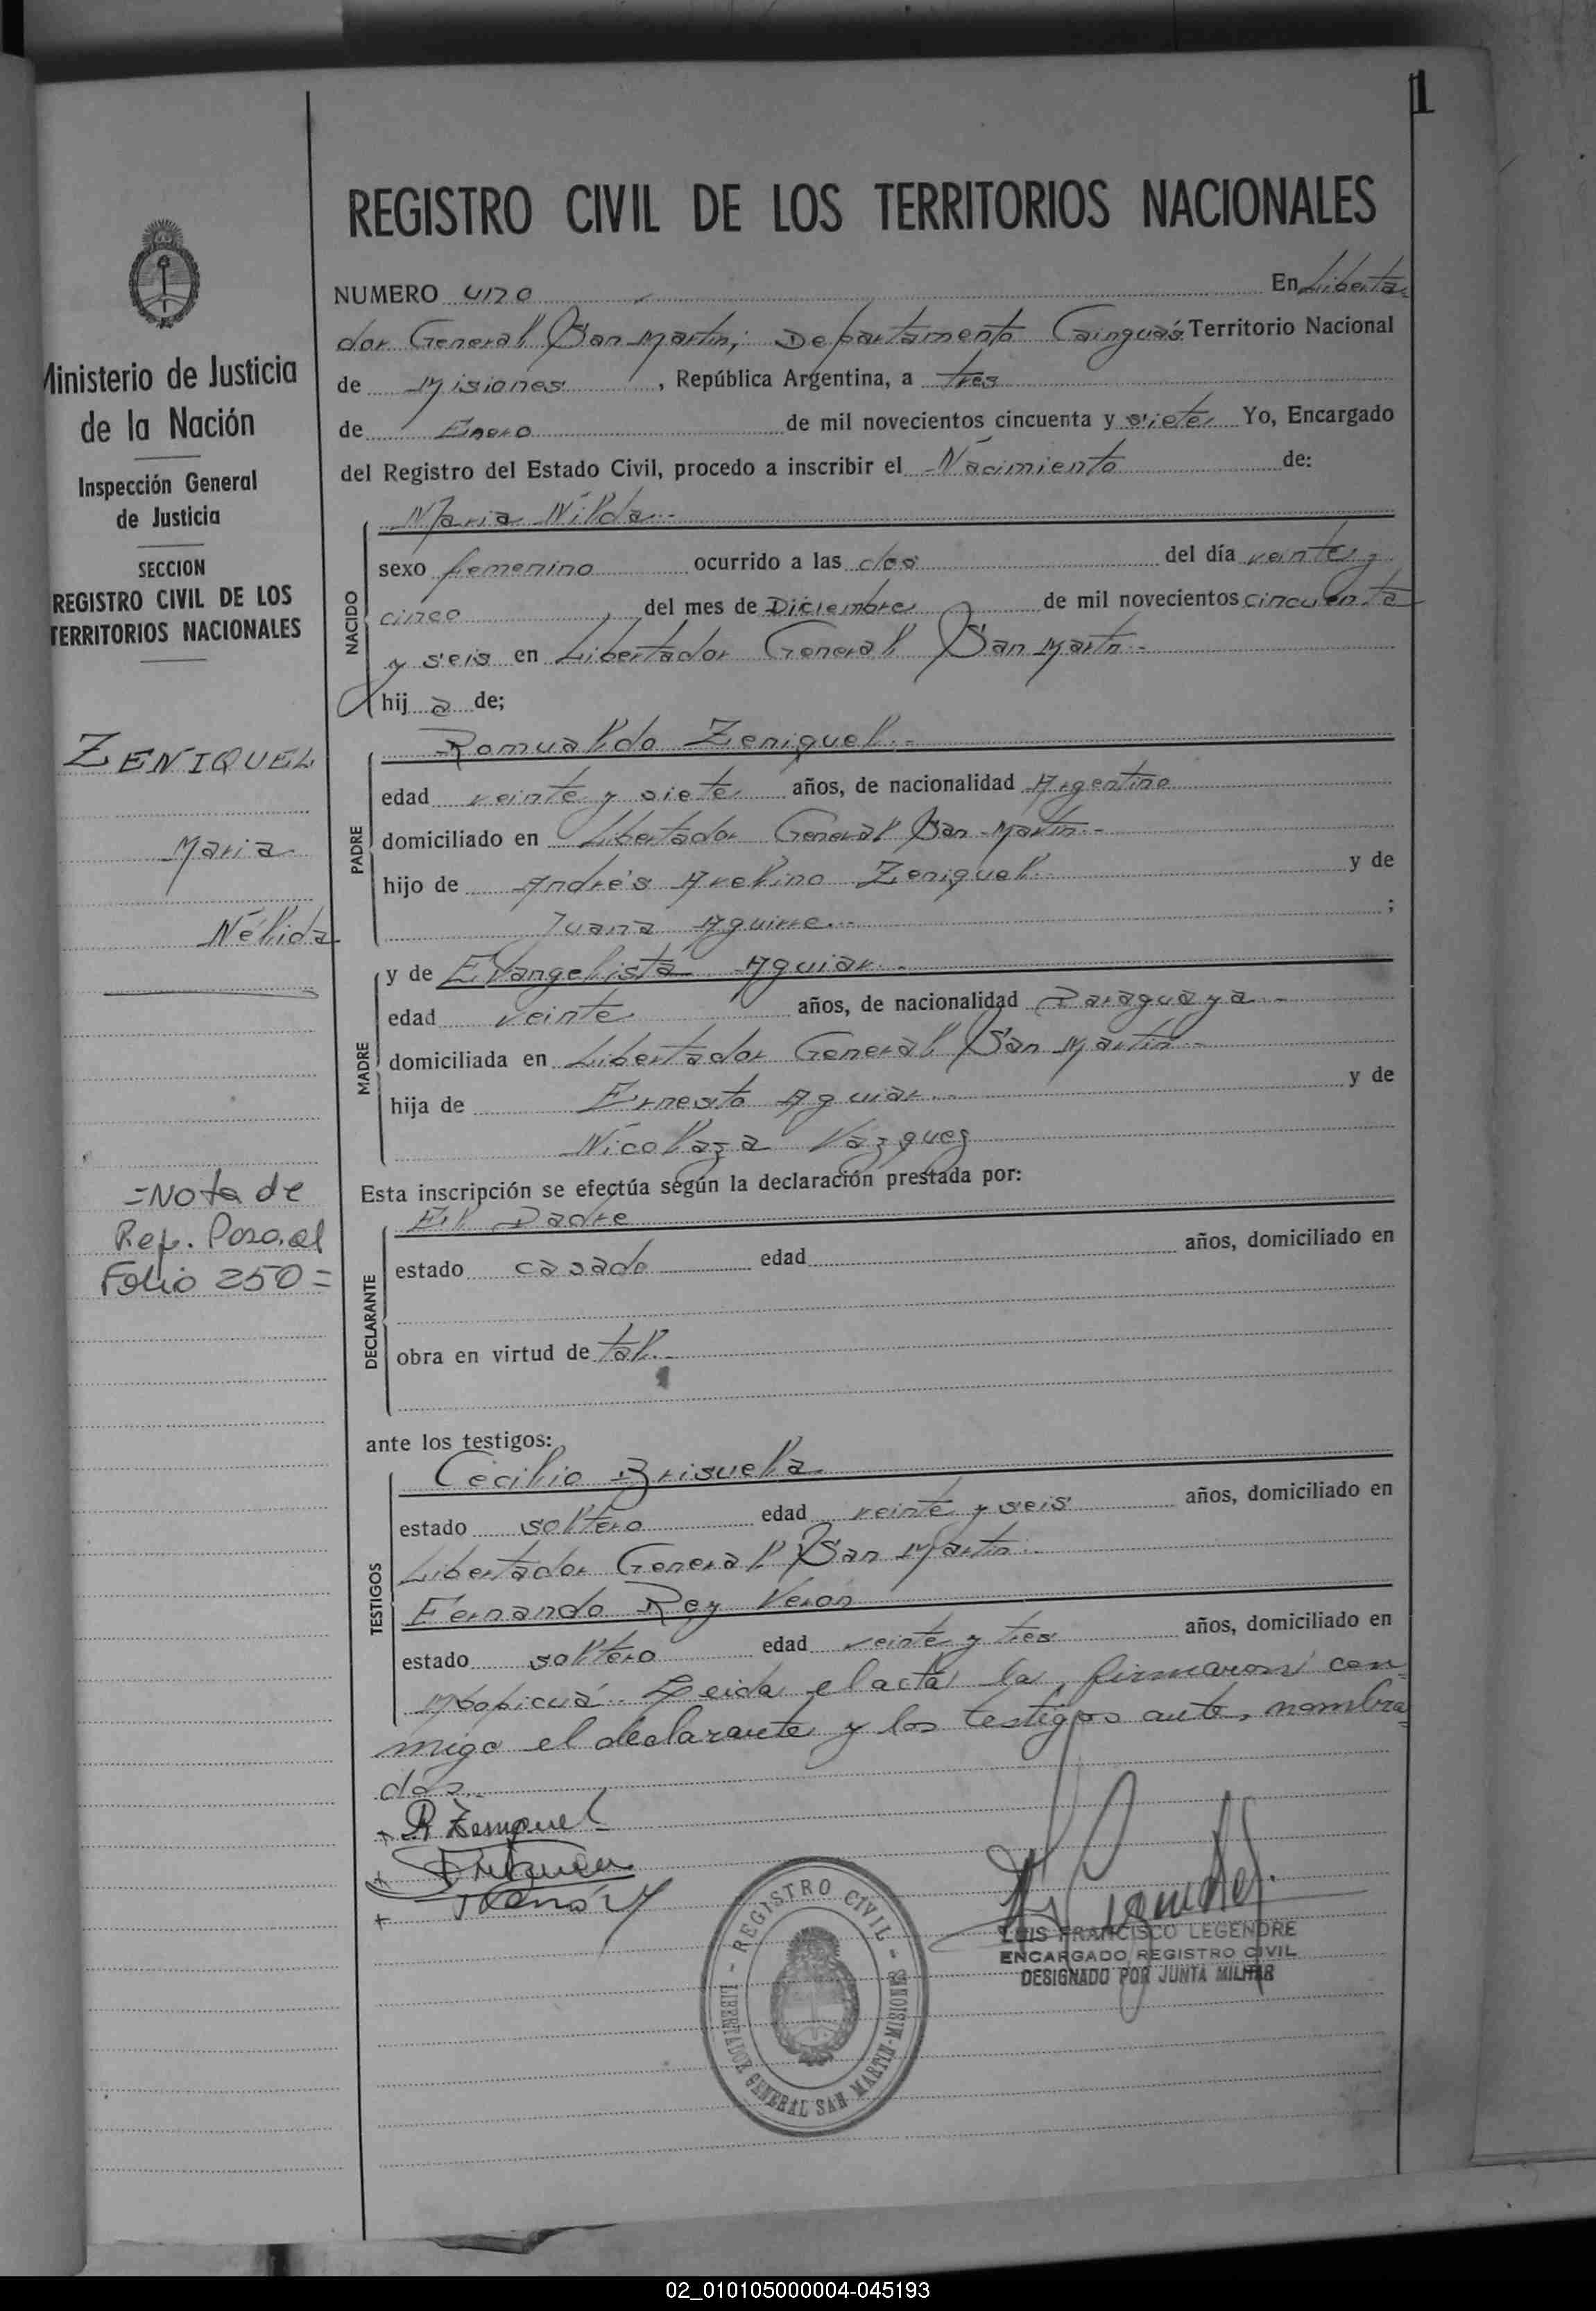 1
REGISTRO CIVIL DE LOS TERRITORIOS NACIONALES
NUMERO uno En Liberta=
dor General San Martin; Departamento Cainguás Territorio Nacional
de Misiones, República Argentina, a tres
de Enero de mil novecientos cincuenta y siete Yo, Encargado
del Registro del Estado Civil, procedo a inscribir el Nacimiento de:
NACIDO
Maria Nilda.-
sexo femenino ocurrido a las dos del día veinte y
cinco del mes de Diciembre de mil novecientos cincuenta
y seis en Libertador General San Martin.-
hij a de;
PADRE
Romualdo Zeniquel.-
edad veinte y siete años, de nacionalidad Argentino
domiciliado en Libertador General San Martin.-
hijo de Andrés Avelino Zeniquel y de
Juana Aguirre.- ;
MADRE
y de Evangelista Aguiar.-
edad veinte años, de nacionalidad Paraguaya.-
domiciliada en Libertador General San Martin.-
hija de Ernesto Aguiar.- y de
Nicolaza Vázquez
Esta inscripción se efectúa según la declaración prestada por:
DECLARANTE
El Padre
estado casado edad años, domiciliado en
obra en virtud de tal.-
ante los testigos:
TESTIGOS
Cecilio Brisuela
estado soltero edad veinte y seis años, domiciliado en
Libertador General San Martin.-
Fernando Rey Verón
estado soltero edad veinte y tres años, domiciliado en
Mbopicuá. Leida el acta la firmaron con=
migo el declarante y los testigos ante, nombra=
dos.-
+ R Zeniquel
+
+
LUIS FRANCISCO LEGENDRE
ENCARGADO REGISTRO CIVIL
DESIGNADO POR JUNTA MILITAR
- REGISTRO CIVIL -
LIBERTADOR GENERAL SAN MARTIN-MISIONES
Ministerio de Justicia
de la Nación
Inspección General
de Justicia
SECCION
REGISTRO CIVIL DE LOS
TERRITORIOS NACIONALES
ZENIQUEL
Maria
Nélida
=Nota de
Ref. al
Folio 250=
02_010105000004-045193